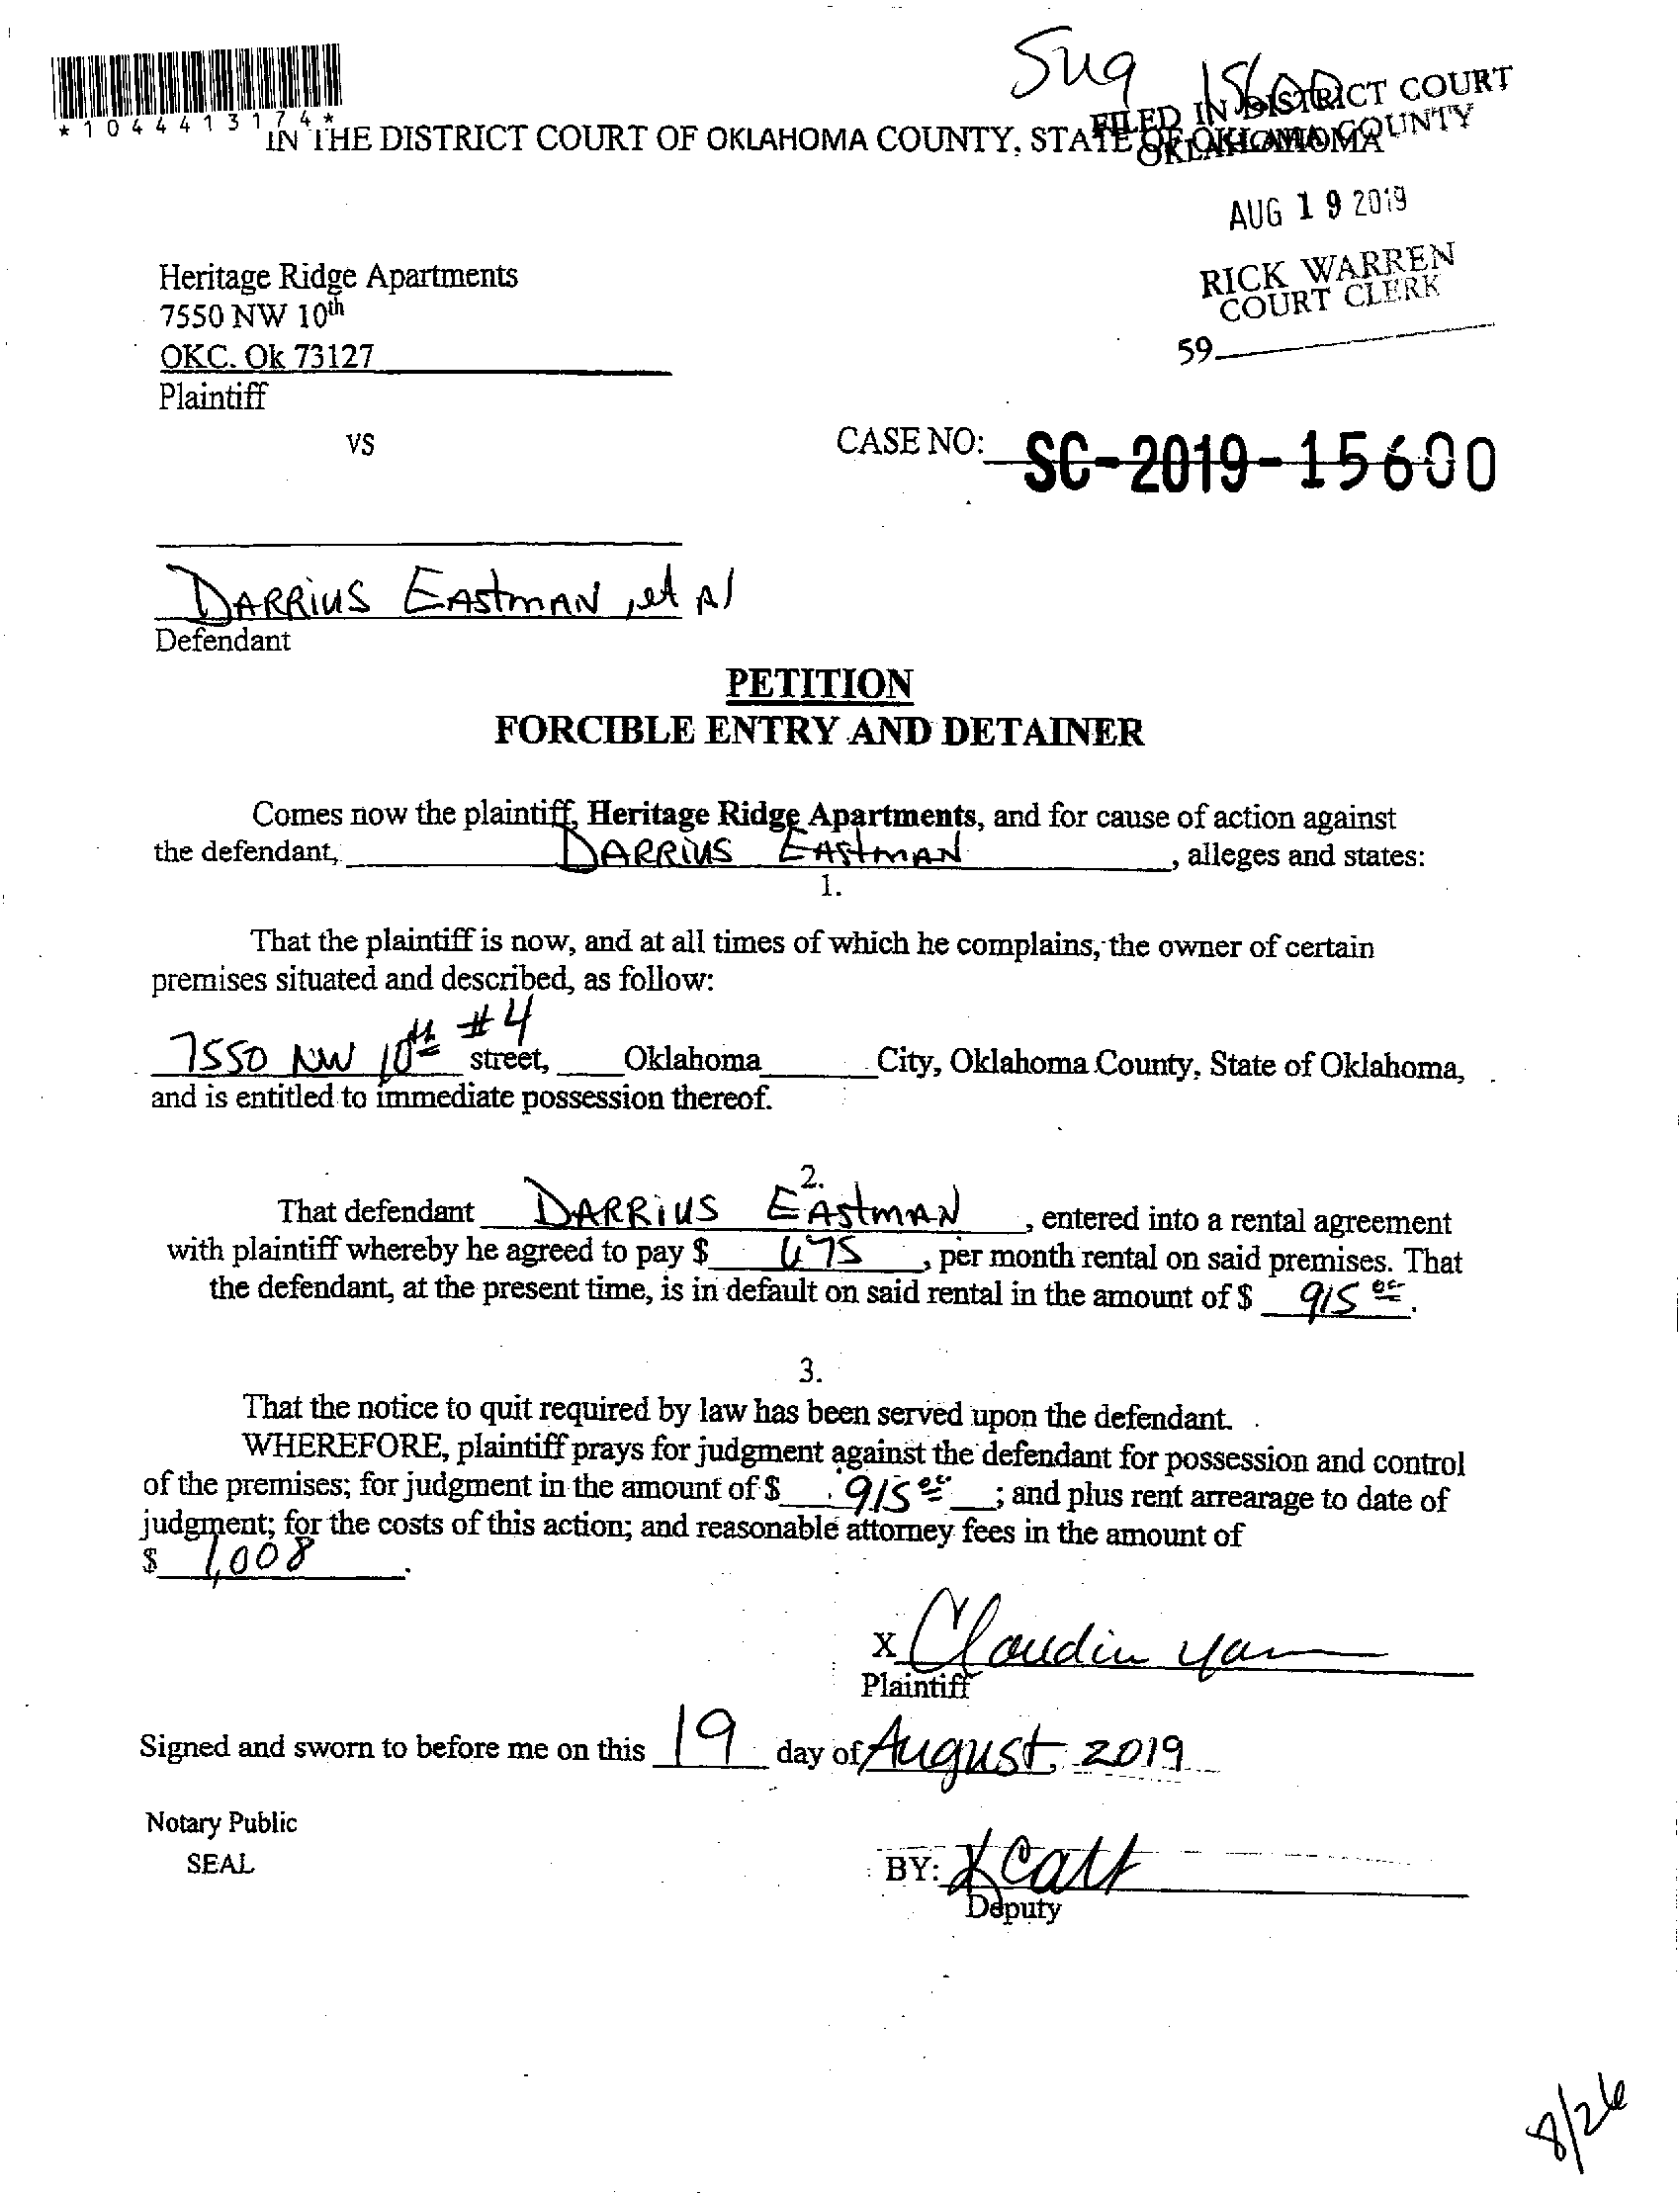 Sug 15600
*1044413174*
IN THE DISTRICT COURT OF OKLAHOMA COUNTY, STATE OF OKLAHOMA
FILED IN DISTRICT COURT
OKLAHOMA COUNTY
AUG 19 2019
RICK WARREN
COURT CLERK
59
Heritage Ridge Apartments
7550 NW 10th
OKC. Ok 73127
Plaintiff
VS
CASE NO: SC-2019-15600
DARRIUS EASTMAN, et Al
Defendant
PETITION
FORCIBLE ENTRY AND DETAINER
Comes now the plaintiff, Heritage Ridge Apartments, and for cause of action against
the defendant, DARRIUS EASTMAN, alleges and states:
1.
That the plaintiff is now, and at all times of which he complains, the owner of certain
premises situated and described, as follow:
7550 NW 10th #4 street, Oklahoma City, Oklahoma County, State of Oklahoma,
and is entitled to immediate possession thereof.
2.
That defendant DARRIUS EASTMAN, entered into a rental agreement
with plaintiff whereby he agreed to pay $ 675, per month rental on said premises. That
the defendant, at the present time, is in default on said rental in the amount of $ 915 00.
3.
That the notice to quit required by law has been served upon the defendant.
WHEREFORE, plaintiff prays for judgment against the defendant for possession and control
of the premises; for judgment in the amount of $ 915 00; and plus rent arrearage to date of
judgment; for the costs of this action; and reasonable attorney fees in the amount of
$ 1,008.
X Claudin
Plaintiff
Signed and sworn to before me on this 19 day of August, 2019
Notary Public
SEAL
BY:
Deputy
8/26